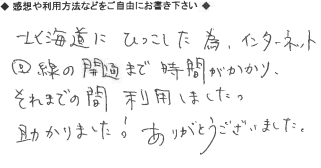 ◆ 感想や利用方法などをご自由にお書き下さい ◆
北海道にひっこした為、インターネット
回線の開通まで時間がかかり、
それまでの間 利用しました。
助かりました! ありがとうございました。